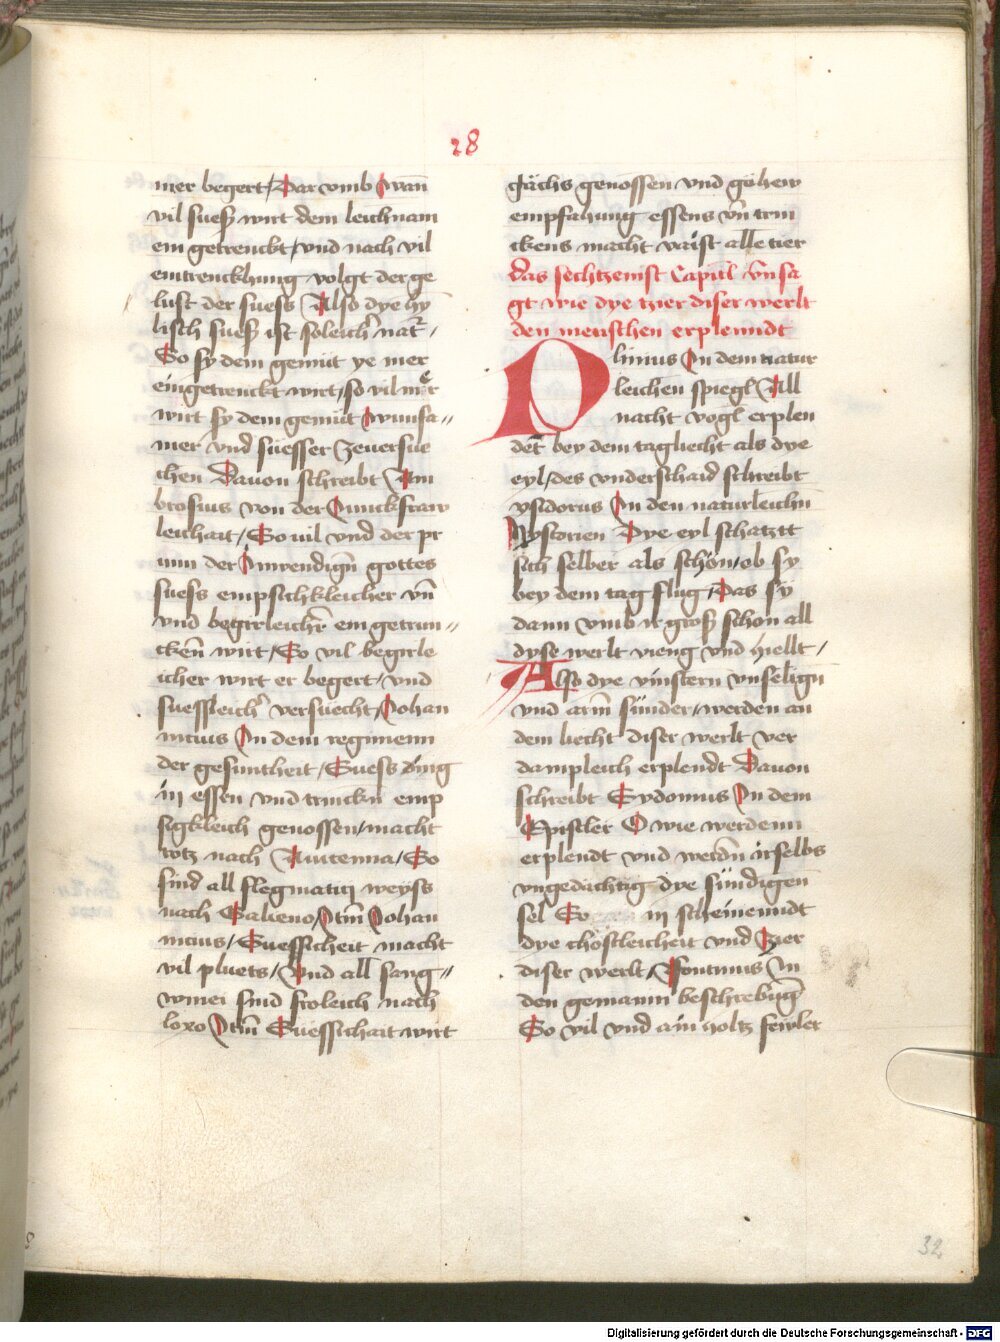 28
mer begert / Dar vmb wan̄
vil suesß wirt dem leichnam
ein getrenckt / vnd nach vil
eintrenckhung volgt der ge
lust der suess Also dye hÿ
lisch suesß ist soleicher nat̄r /
So sy dem gemüt ye mer
eingetrenckt wirt / so vil mer
wirt sy dem gemüt wunsa〃
mer vnd suesser Zeuersue
chen Dauon schreibt Am
brosius von der Junckfraw
leichait / So vil vnd der pr
unn der Inwendign̄ gottes
suess empsichkleicher vn̄
vnd begirleicher ein getrun〃
cken̄ wirt / So vil begirle
icher wirt er begert / vnd
suessleicher versuecht / Johan
nicius In dem regiment
der gesuntheit / Suess ding
in essen vnd trinckn̄ emp
sigkleich genossen / macht
rotz nach Auicenna / So
sind all flegmatici weyss
nach Galieno / Itm̄ Johan
nicius / Suessicheit macht
vil pluets / Vnd all sang〃
winei sind froleich nach
loxo Itm̄ Suessichait wirt
gächs genossen vnd gähew
empfahung essens vn̄ trin
ckens macht vaist alle tier
das sechtzeinst Capitl̄ vn̄ sa
gt wie dye tzier diser werlt
den menschen erplenndt
Plinius In dem natur
leichen spiegl̄ All
nacht vogl̄ erplen
det̄ bey dem tagliecht als dye
eyl / des vnderschaid schreibt
ysidorus In den naturleichn̄
Hystorien Dye eyl schatztt
sich selber als schön / ob sy
bey dem tag flug / Das sÿ
dann vmb ir grosß schon all
dyse werlt vieng vnd hiellt /
Also dye vinstern vnselign̄
vnd arm̄ sünder / werden an
dem liecht diser werlt ver
dampleich erplendt Dauon
schreibt Sydonius In dem
Epistler O wie werdenn
erplendt vnd werdn̄ irselbs
vngedächtig dye sündigen
sel So in scheinenndt
dye chostleicheit vnd Zier
diser werlt / Fontinus In
den gemainn beschreibūg
So vil vnd ain holtz fewler
32
Digitalisierung gefördert durch die Deutsche Forschungsgemeinschaft - DFG